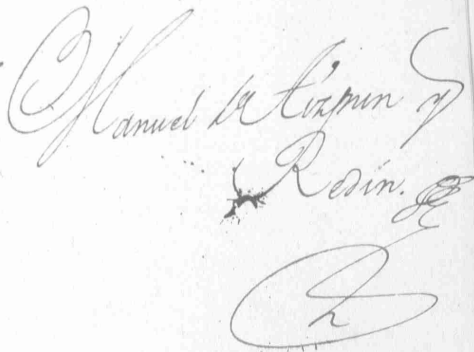 Manuel de Aizpun y
Redin.